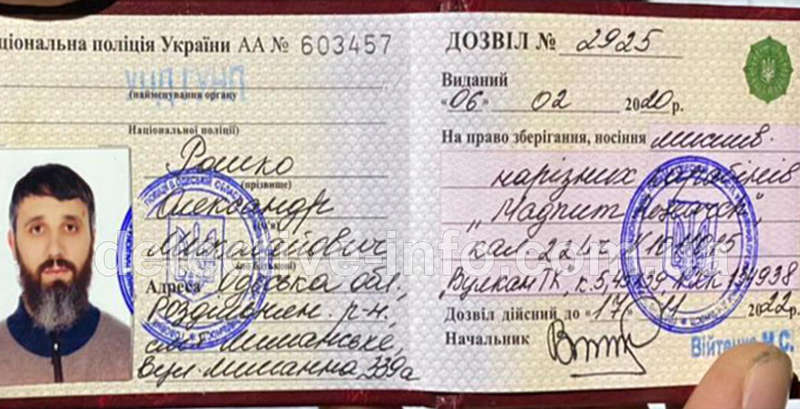 ціональна поліція України АА № 603457
(найменування органу
Національної поліції)
Рошко
(прізвище)
Олександр
Миколайович
Адреса Одеська обл.,
Роздільнян. р-н.
Лиманське,
вул. 339а
ДОЗВІЛ № 2925
Виданий
"06" 02 2020 р.
На право зберігання, носіння мислив.
нарізних карабінів
кал 224
Вулкан ТК, к. 5,45х39 134938
Дозвіл дійсний до "17" 11 2022 р.
Начальник Війтенко М.С.
detective-info.com.ua